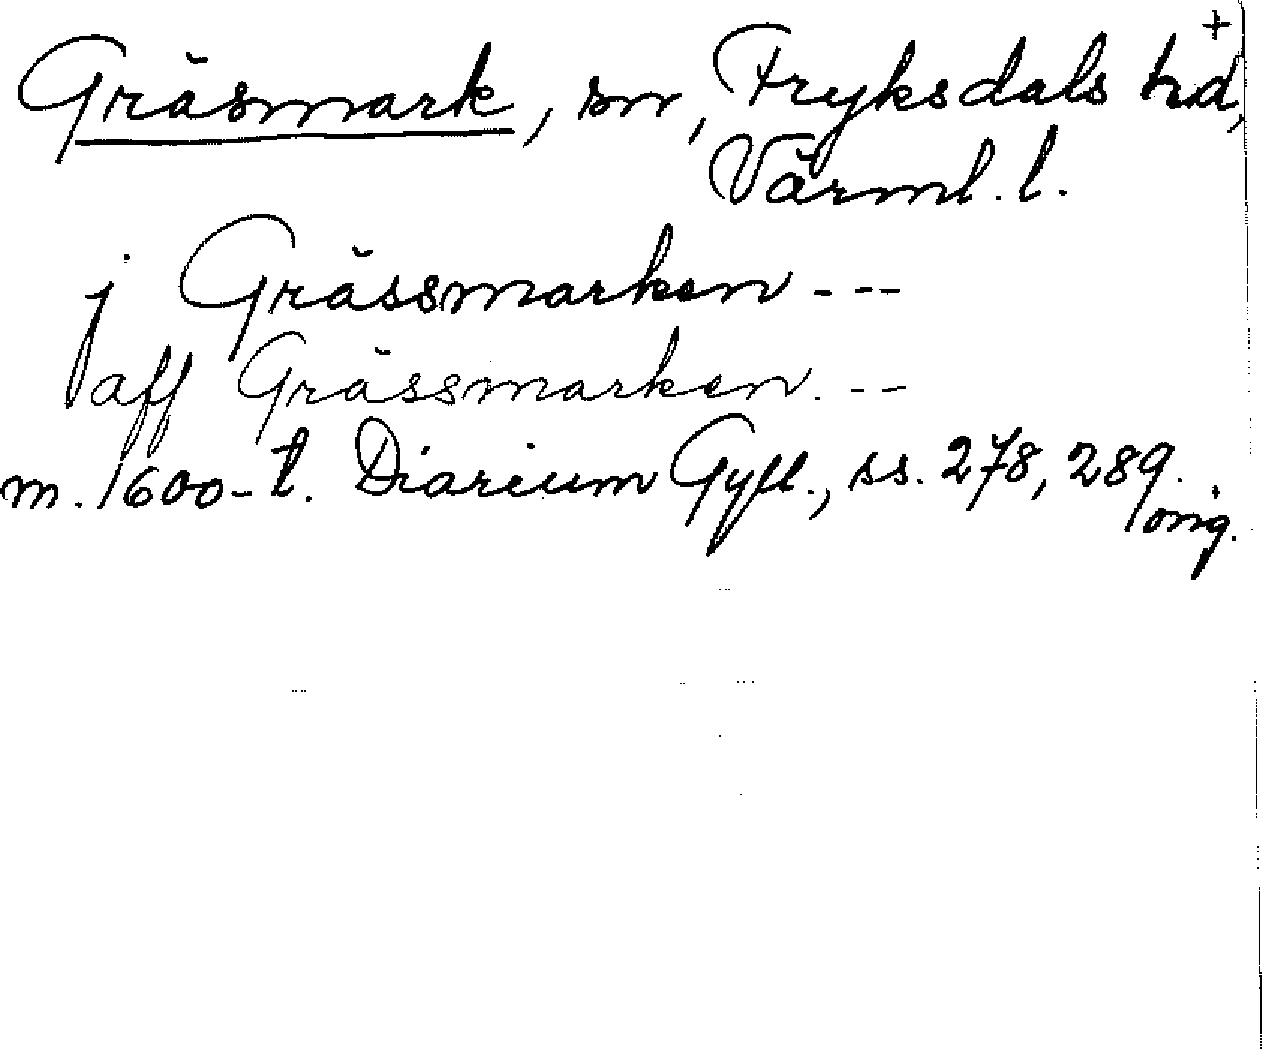 +
Gräsmark, sn, Fryksdals hd,
Värml. l.
j Grässmarken ---
aff Grässmarken. --
m. 1600-t. Diarium Gyll., ss. 278, 289.
orig.